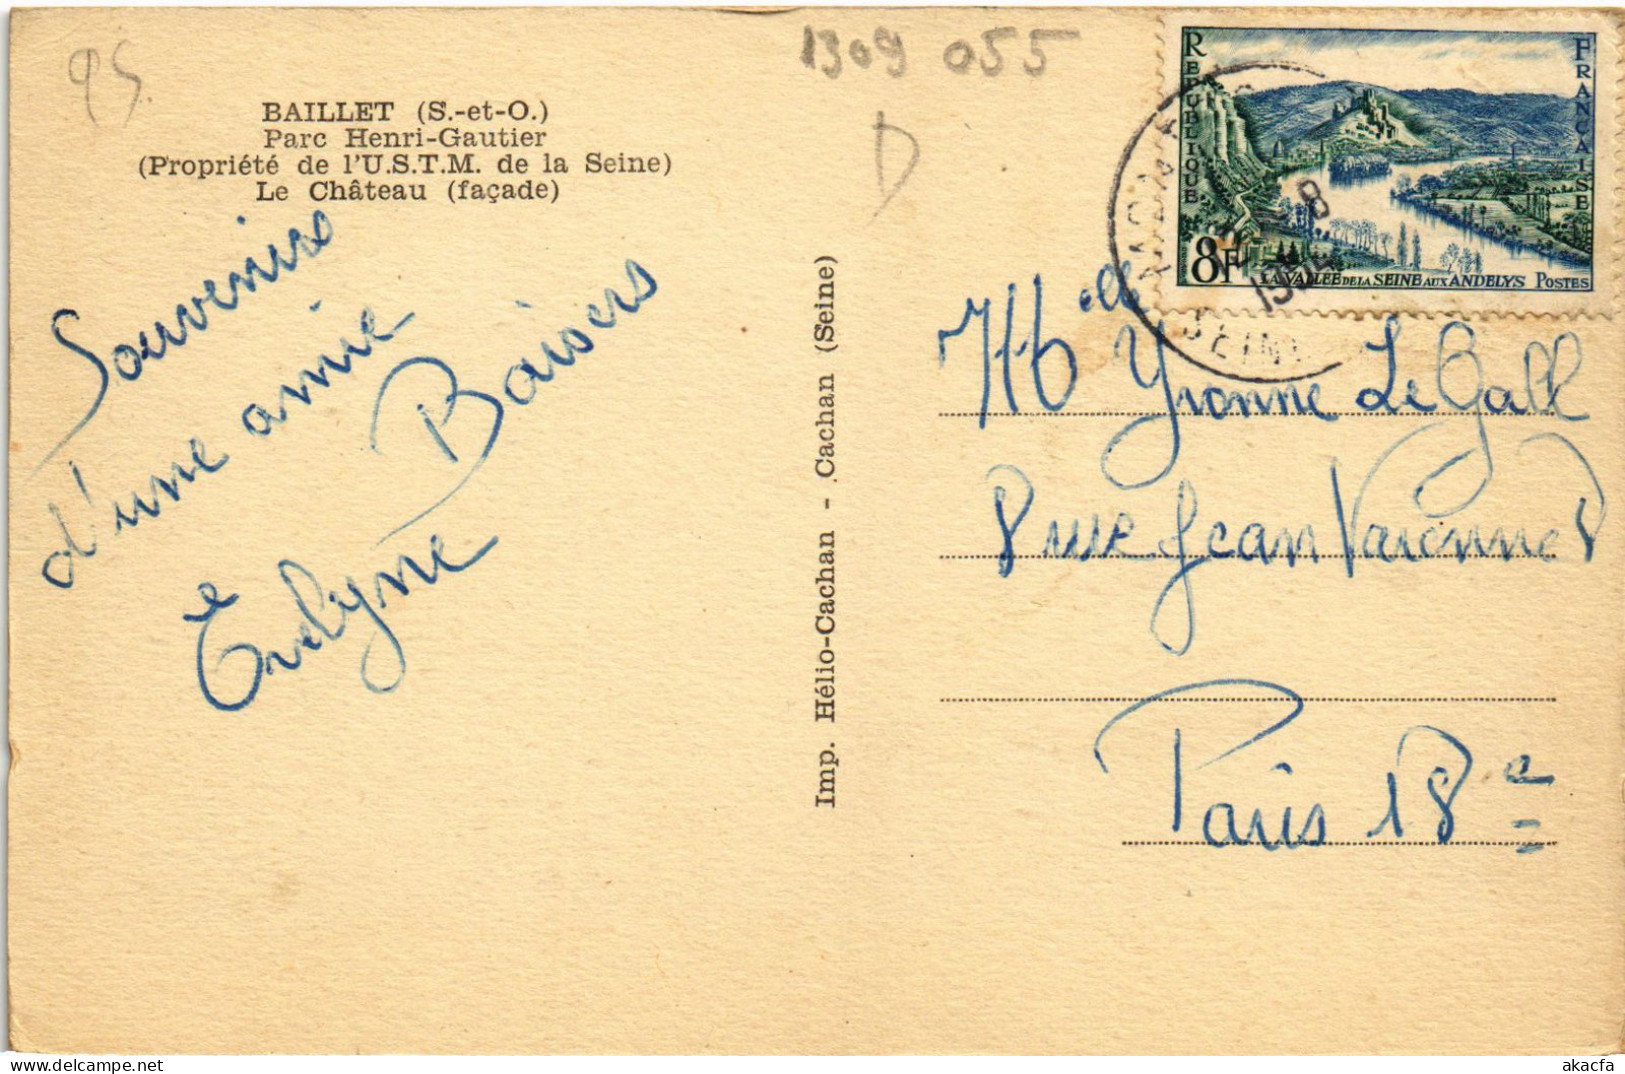 95
1309 055
D
BAILLET (S.-et-O.)
Parc Henri-Gautier
(Propriété de l'U.S.T.M. de la Seine)
Le Château (façade)
Souvenirs
d'une amie
Baisers
Evelyne
Imp. Hélio-Cachan - Cachan (Seine)
REPUBLIQUE FRANCAISE
8F LA VALLÉE DE LA SEINE AUX ANDELYS POSTES
SEINE
Melle Yvonne Le Gall
8 rue Jean Varenne
Paris 18e
akacfa
delcampe.net